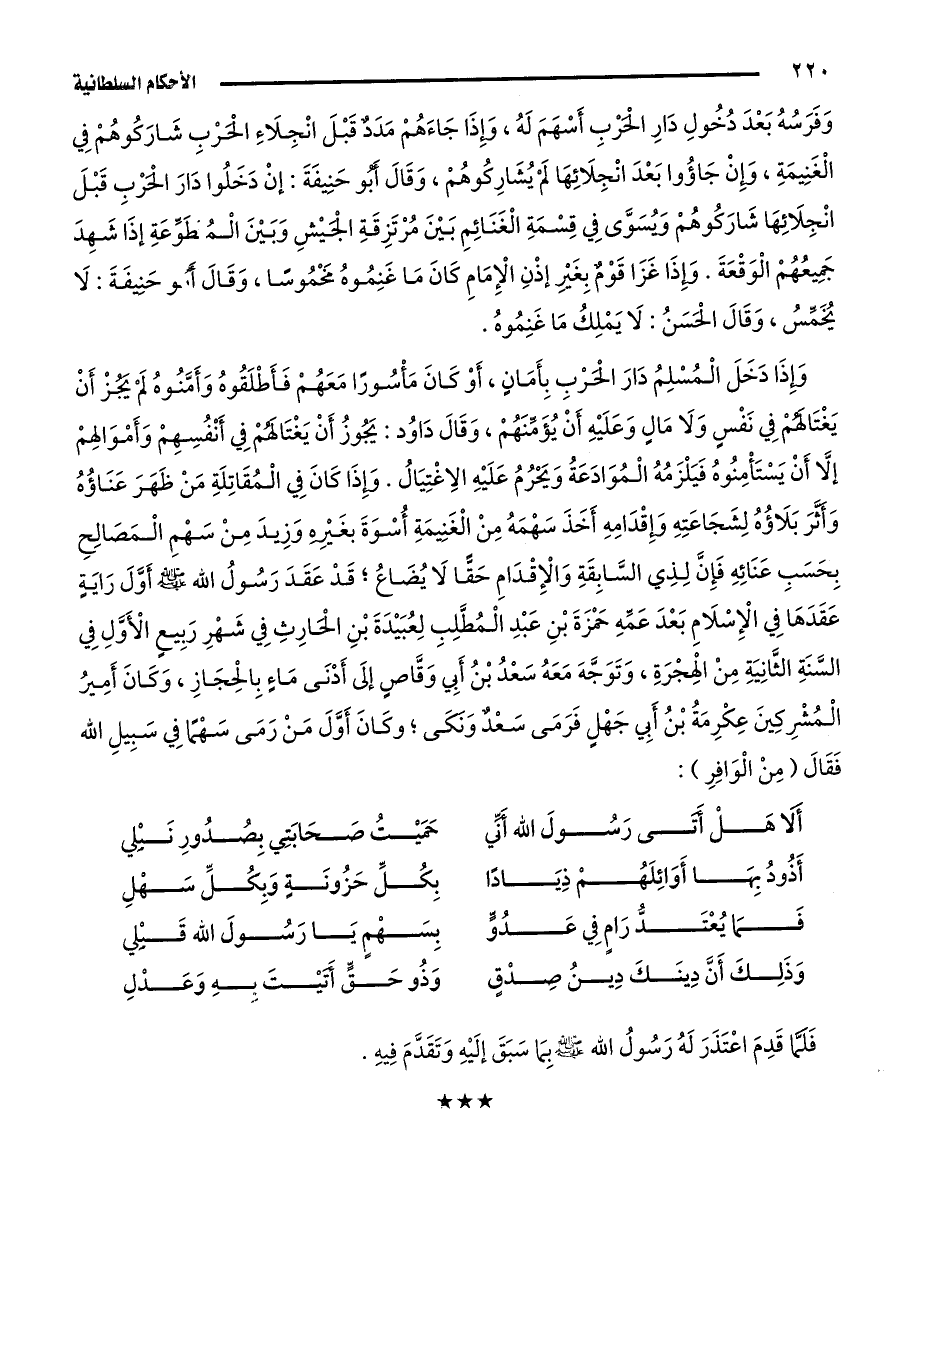 ٢٢٠ الأحكام السلطانية
وَفَرَسُهُ بَعْدَ دُخُولِ دَارِ الْحَرْبِ أَسْهَمَ لَهُ ، وَإِذَا جَاءَهُمْ مَدَدٌ قَبْلَ انْجِلَاءِ الْحَرْبِ شَارَكُوهُمْ فِي
الْغَنِيمَةِ ، وَإِنْ جَاؤُوا بَعْدَ انْجِلَائِهَا لَمْ يُشَارِكُوهُمْ ، وَقَالَ أَبُو حَنِيفَةَ : إِنْ دَخَلُوا دَارَ الْحَرْبِ قَبْلَ
انْجِلَائِهَا شَارَكُوهُمْ وَيُسَوَّى فِي قِسْمَةِ الْغَنَائِمِ بَيْنَ مُرْتَزِقَةِ الْجَيْشِ وَبَيْنَ الْمُطَوِّعَةِ إِذَا شَهِدَ
جَمِيعُهُمْ الْوَقْعَةَ . وَإِذَا غَزَا قَوْمٌ بِغَيْرِ إِذْنِ الْإِمَامِ كَانَ مَا غَنِمُوهُ مَخْمُوسًا ، وَقَالَ أَبُو حَنِيفَةَ : لَا
يُخَمَّسُ ، وَقَالَ الْحَسَنُ : لَا يَمْلِكُ مَا غَنِمُوهُ .
وَإِذَا دَخَلَ الْمُسْلِمُ دَارَ الْحَرْبِ بِأَمَانٍ ، أَوْ كَانَ مَأْسُورًا مَعَهُمْ فَأَطْلَقُوهُ وَأَمَّنُوهُ لَمْ يَجُزْ أَنْ
يَغْتَالَهُمْ فِي نَفْسٍ وَلَا مَالٍ وَعَلَيْهِ أَنْ يُؤَمِّنَهُمْ ، وَقَالَ دَاوُد : يَجُوزُ أَنْ يَغْتَالَهُمْ فِي أَنْفُسِهِمْ وَأَمْوَالِهِمْ
إِلَّا أَنْ يَسْتَأْمِنُوهُ فَيَلْزَمُهُ الْمُوَادَعَةُ وَيَحْرُمُ عَلَيْهِ الِاغْتِيَالُ . وَإِذَا كَانَ فِي الْمُقَاتِلَةِ مَنْ ظَهَرَ عَنَاؤُهُ
وَأَثَّرَ بَلَاؤُهُ لِشَجَاعَتِهِ وَإِقْدَامِهِ أَخَذَ سَهْمَهُ مِنْ الْغَنِيمَةِ أُسْوَةَ بِغَيْرِهِ وَزِيدَ مِنْ سَهْمِ الْمَصَالِحِ
بِحَسَبِ عَنَائِهِ فَإِنَّ لِذِي السَّابِقَةِ وَالْإِقْدَامِ حَقًّا لَا يُضَاعُ ؛ قَدْ عَقَدَ رَسُولُ الله ﷺ أَوَّلَ رَايَةٍ
عَقَدَهَا فِي الْإِسْلَامِ بَعْدَ عَمِّهِ حَمْزَةَ بْنِ عَبْدِ الْمُطَّلِبِ لِعُبَيْدَةَ بْنِ الْحَارِثِ فِي شَهْرِ رَبِيعٍ الْأَوَّلِ فِي
السَّنَةِ الثَّانِيَةِ مِنْ الْهِجْرَةِ ، وَتَوَجَّهَ مَعَهُ سَعْدُ بْنُ أَبِي وَقَّاصٍ إِلَى أَدْنَى مَاءٍ بِالْحِجَازِ ، وَكَانَ أَمِيرُ
الْمُشْرِكِينَ عِكْرِمَةُ بْنُ أَبِي جَهْلٍ فَرَمَى سَعْدٌ وَنَكَى ؛ وَكَانَ أَوَّلَ مَنْ رَمَى سَهْمًا فِي سَبِيلِ الله
فَقَالَ ( مِنْ الْوَافِرِ ) :
أَلَا هَلْ أَتَى رَسُولَ الله أَنِّي حَمَيْتُ صَحَابَتِي بِصُدُورِ نَبْلِي
أَذُودُ بِهَا أَوَائِلَهُمْ ذِيَادًا بِكُلِّ حَزُونَةٍ وَبِكُلِّ سَهْلِ
فَمَا يُعْتَدُّ رَامٍ فِي عَدُوٍّ بِسَهْمٍ يَا رَسُولَ الله قَبْلِي
وَذَلِكَ أَنَّ دِينَكَ دِينُ صِدْقٍ وَذُو حَقٍّ أَتَيْتَ بِهِ وَعَدْلِ
فَلَمَّا قَدِمَ اعْتَذَرَ لَهُ رَسُولُ الله ﷺ بِمَا سَبَقَ إِلَيْهِ وَتَقَدَّمَ فِيهِ .
★★★